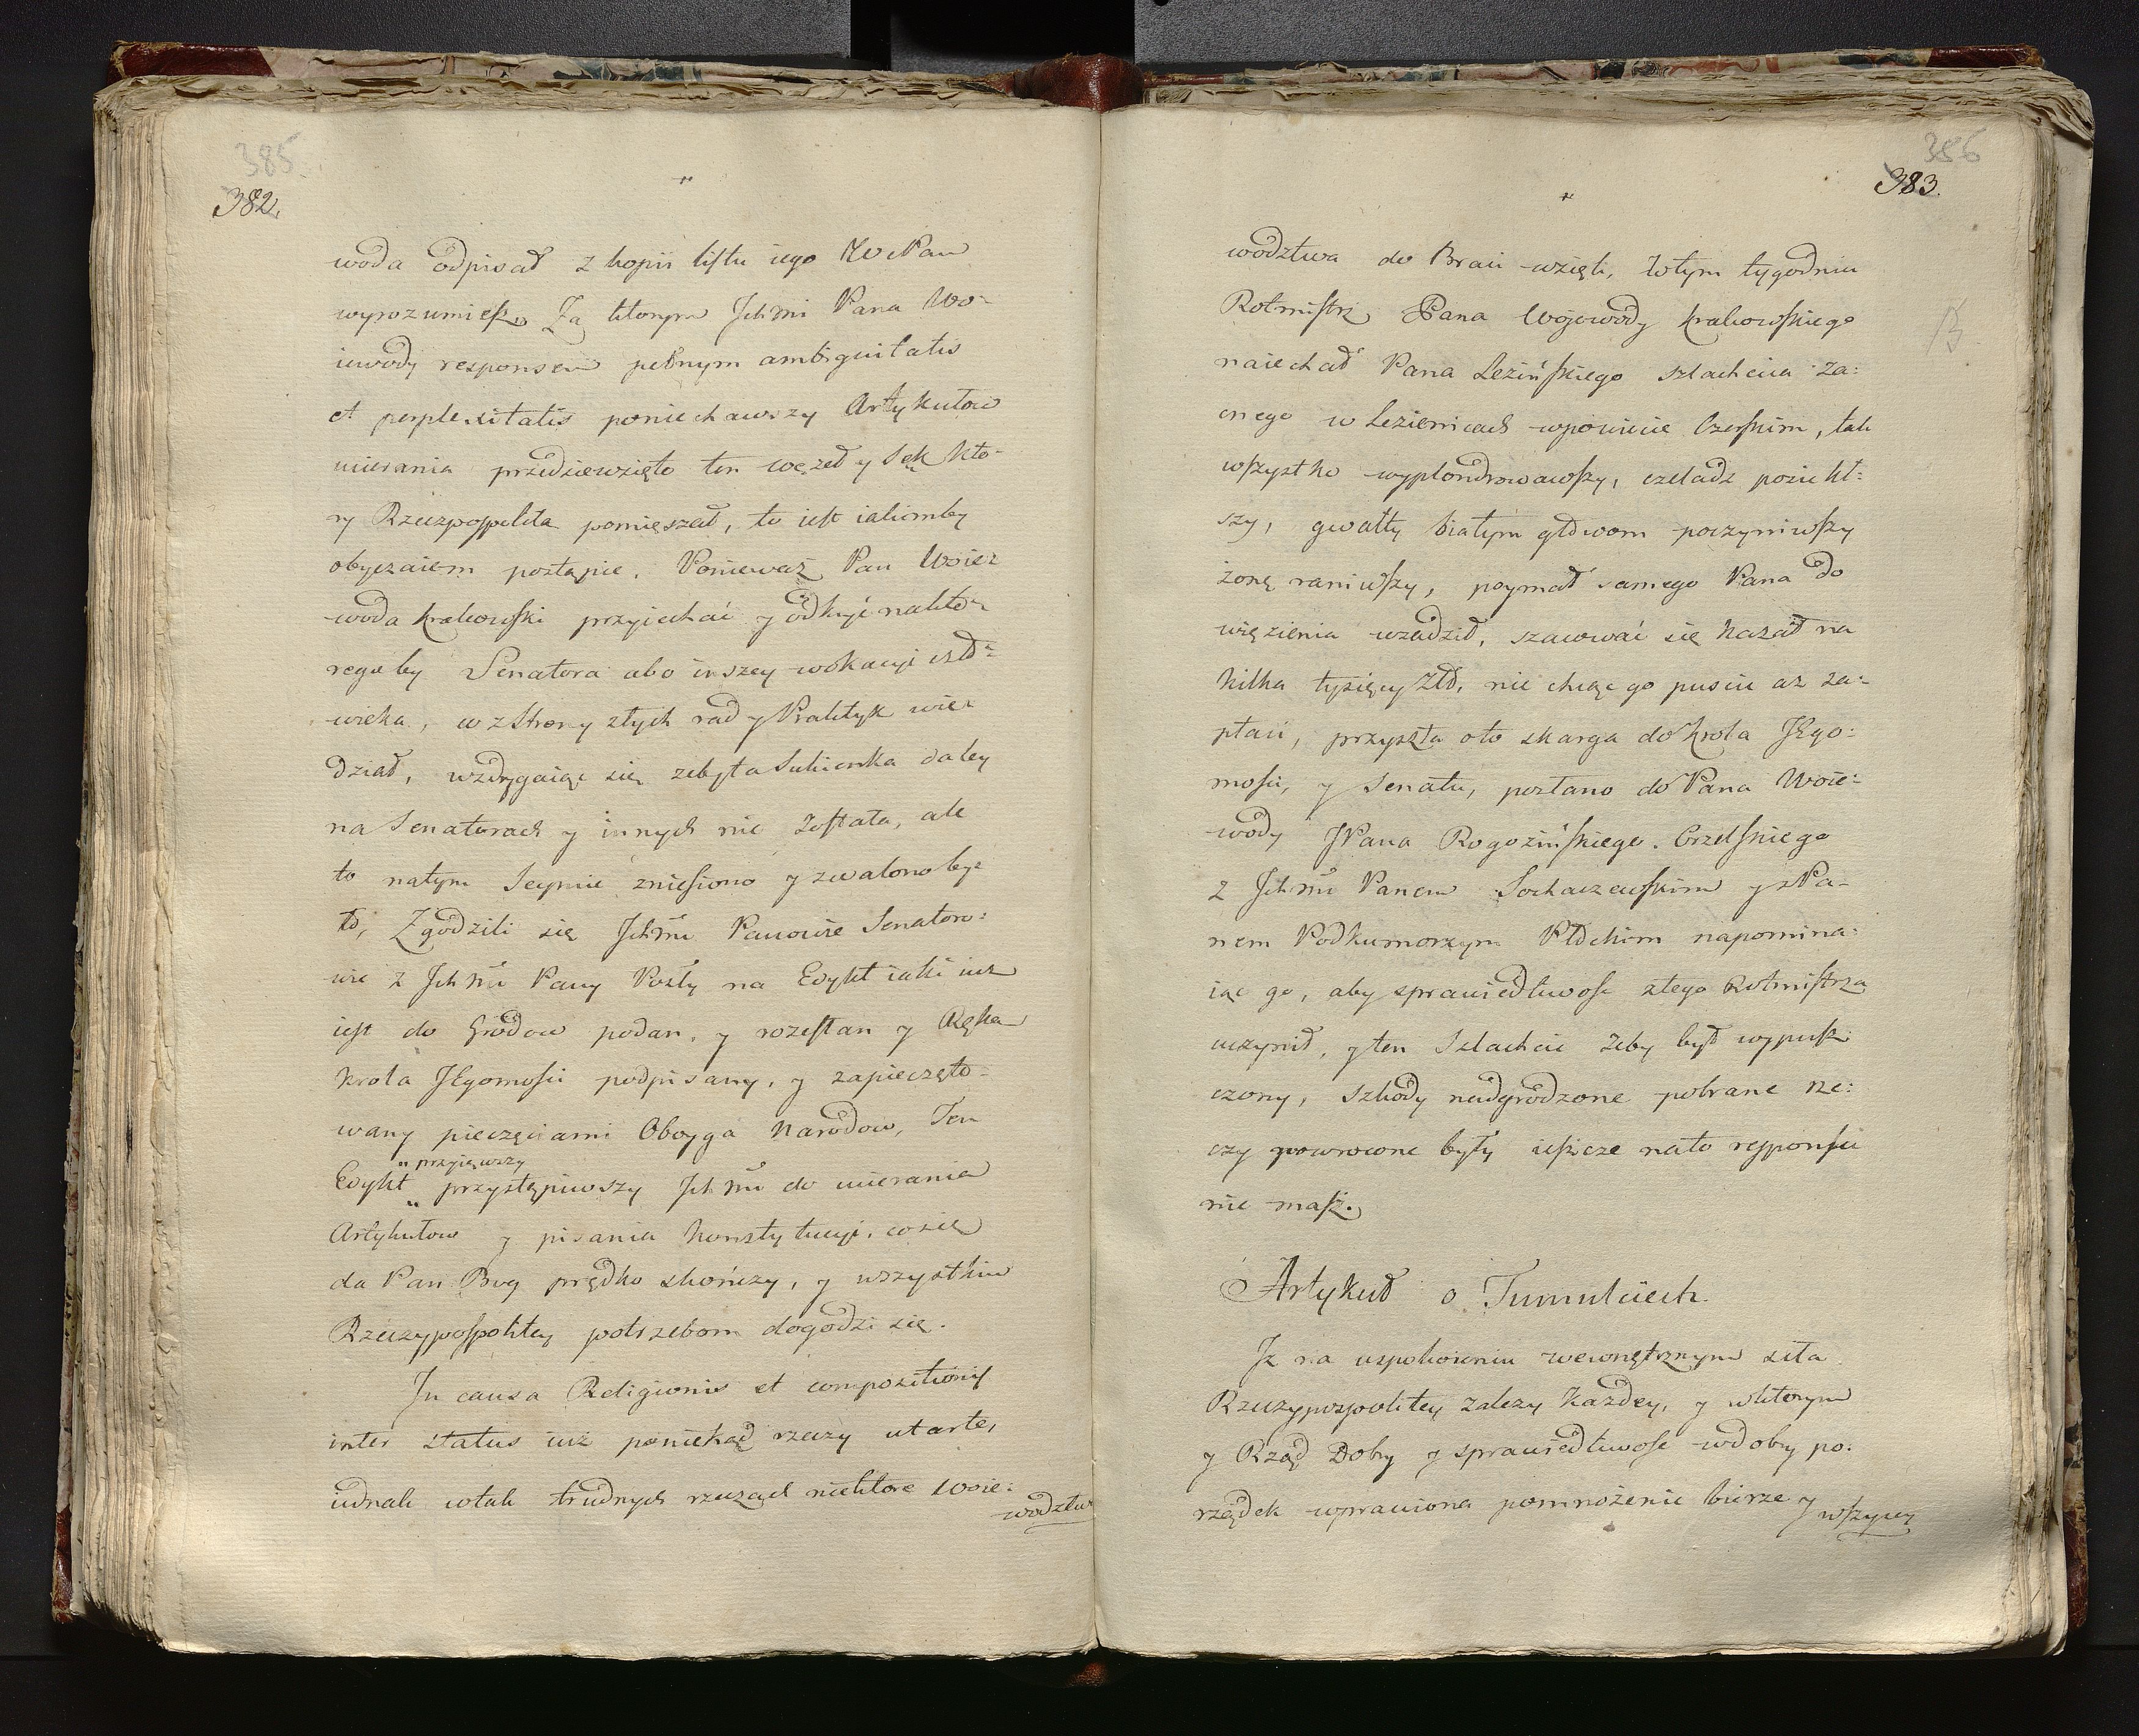 385.
382.
"
woda odpisał z kopii listu iego WPan
wyrozumiesz, Za ktorym Jchmi Pana Wo-
iewody responsem pełnym ambiguitatis
et perplexitatis poniechawszy Artykułow
ucierania przedsiewzięto ten węzeł y Sęk kto-
ry Rzeczpospolita pomięszał, to iest iakiemby
obyczaiem postąpic. Ponieważ Pan Woie-
woda krakowski przyiechać y odkryć nakto-
regoby Senatora abo inszey wokacyi czło-
wieka, wzstrony złych rad y Praktyk wie-
dział, wzdrygaiąc się zeby ta Sukienka daley
na Senatorach y innych nie została, ale
to natym Seymie zniesiono y zwalono by-
ło, Zgodzili się Jchmi Panowie Senatoro-
wie z Jchmi Pany Posły na Edykt iaki iuz
iest do Grodow podan, y rozesłan y Ręką
krola JEgomosci podpisany, y zapieczęto-
wany pieczęciami Oboyga Narodow, Ten
" przyiąwszy
Edykt " przystąpiwszy Jchmi do ucierania
Artykułow y pisania konstytucyi, co się
da Pan Bog prędko skończy, y wszystkim
Rzeczypospolitey potrzebom dogodzi się.
In causa Religionis et compositionis
inter status iuż poniekąd rzeczy utarte,
iednak wtak trudnych rzeczach niektore Woie-
wodztw
386
383.
"
wodztwa do Braci wzięli, Wtym tygodniu
Rotmistrz Pana Wojewody krakowskiego
naiechał Pana Lezińskiego szlachcica za-
cnego w Lezienicach wpowiecie Czerskim, tak
wszystko wyplondrowawszy, czeladz posiekł-
szy, gwałty białym głowom poczyniwszy
żonę raniwszy, poymał samego Pana do
więzienia wsadził, szacować się kazał na
kilka tysięcy Złł. nie chcąc go puscic az za-
płaci, przyszła oto skarga do krola JEgo-
mosci, y Senatu, posłano do Pana Woie-
wody JPana Rogozińskiego. Czelskiego
z Jchmi Panem Sochaczewskim y zPa-
nem Podkumorzym Płckim napomina-
iąc go, aby sprawiedliwosc ztego Rotmistrza
uczynił, y ten Szlachcic zeby był wypusz-
czony, szkody nadgrodzone pobrane rze-
czy powrocone były ieszcze nato responsu
nie masz.
Artykuł o Tumulciech
Jz na uspokoieniu wewnętrznym siła
Rzeczypospolitey zalezy każdey, y wktorym
y Rząd Dobry y sprawiedliwosc wdobry po-
rządek wprawiona pomnożenie bierze y
wszyscy